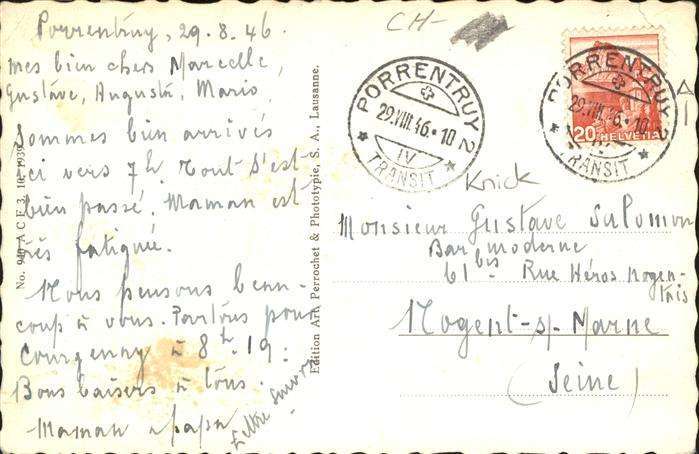 Porrentruy, 29.8.46.
mes bien chers Marcelle,
Gustave, Augusta, Mario
Sommes bien arrivés
ici vers 7h Tout s'est
bien passé. Maman est
très fatiguée.
Nous pensons beau-
coup à vous. Partons pour
Courgenay à 8h.19.
Bons baisers à tous.
Maman papa
Lettre suivra
No. 940 A C F 3. 10. 1939
Edition Art. Perrochet & Phototypie, S. A., Lausanne.
CH-
PORRENTRUY 2
29.VIII.46.-10
IV
TRANSIT
PORRENTRUY 2
29.VIII.46.-10
IV
TRANSIT
20 HELVETIA
Knick
Monsieur Gustave Salomon
Bar moderne
61 bis Rue Héros Nogen-
tais
Nogent-s/-Marne
(Seine)